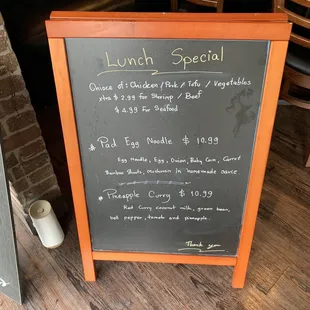 Lunch Special
Choice of: Chicken / Pork / Tofu / Vegetables
xtra $ 2.99 for Shrimp / Beef
$ 4.99 for Seafood
* Pad Egg Noodle $ 10.99
Egg Noodle, Egg, Onion, Baby Corn, Carrot
Bamboo Shoots, Mushroom in homemade sauce
* Pineapple Curry $ 10.99
Red Curry coconut milk, green bean,
bell pepper, tomato and pineapple.
Thank you